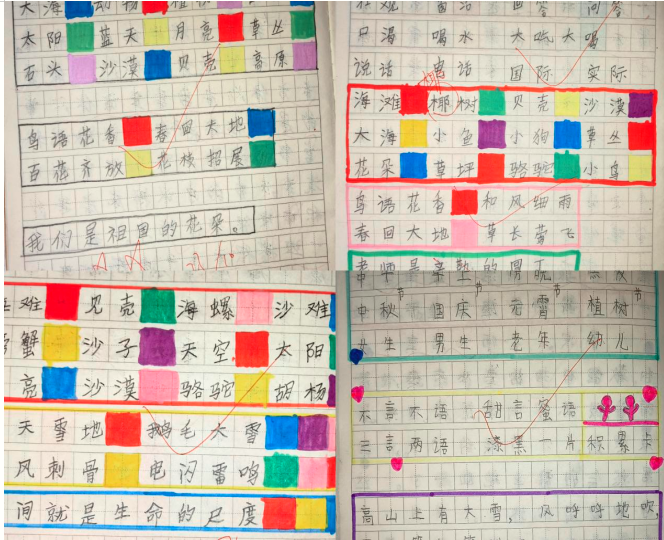 太阳 蓝天 月亮 草丛
石头 沙漠 贝壳 高原
鸟语花香 春回大地
百花齐放 花枝招展
我们是祖国的花朵。
口渴 喝水 大吼大喝
说话 电话 国际 实际
椰
海滩 椰树 贝壳 沙漠
大海 小鱼 小狗 草丛
花朵 草坪 骆驼 小鸟
鸟语花香 和风细雨
春回大地 草长莺飞
难 见壳 海螺 沙难
蟹 沙子 天空 太阳
亮 沙漠 骆驼 胡杨
天雪地 鹅毛大雪
风刺骨 电闪雷鸣
间就是生命的尺度
节 节 节
中秋 国庆 元霄 植树
女生 男生 老年 幼儿
不言不语 甜言蜜语
三言两语 漆黑一片 积累卡
高山上有大雪，风呼呼地吹，